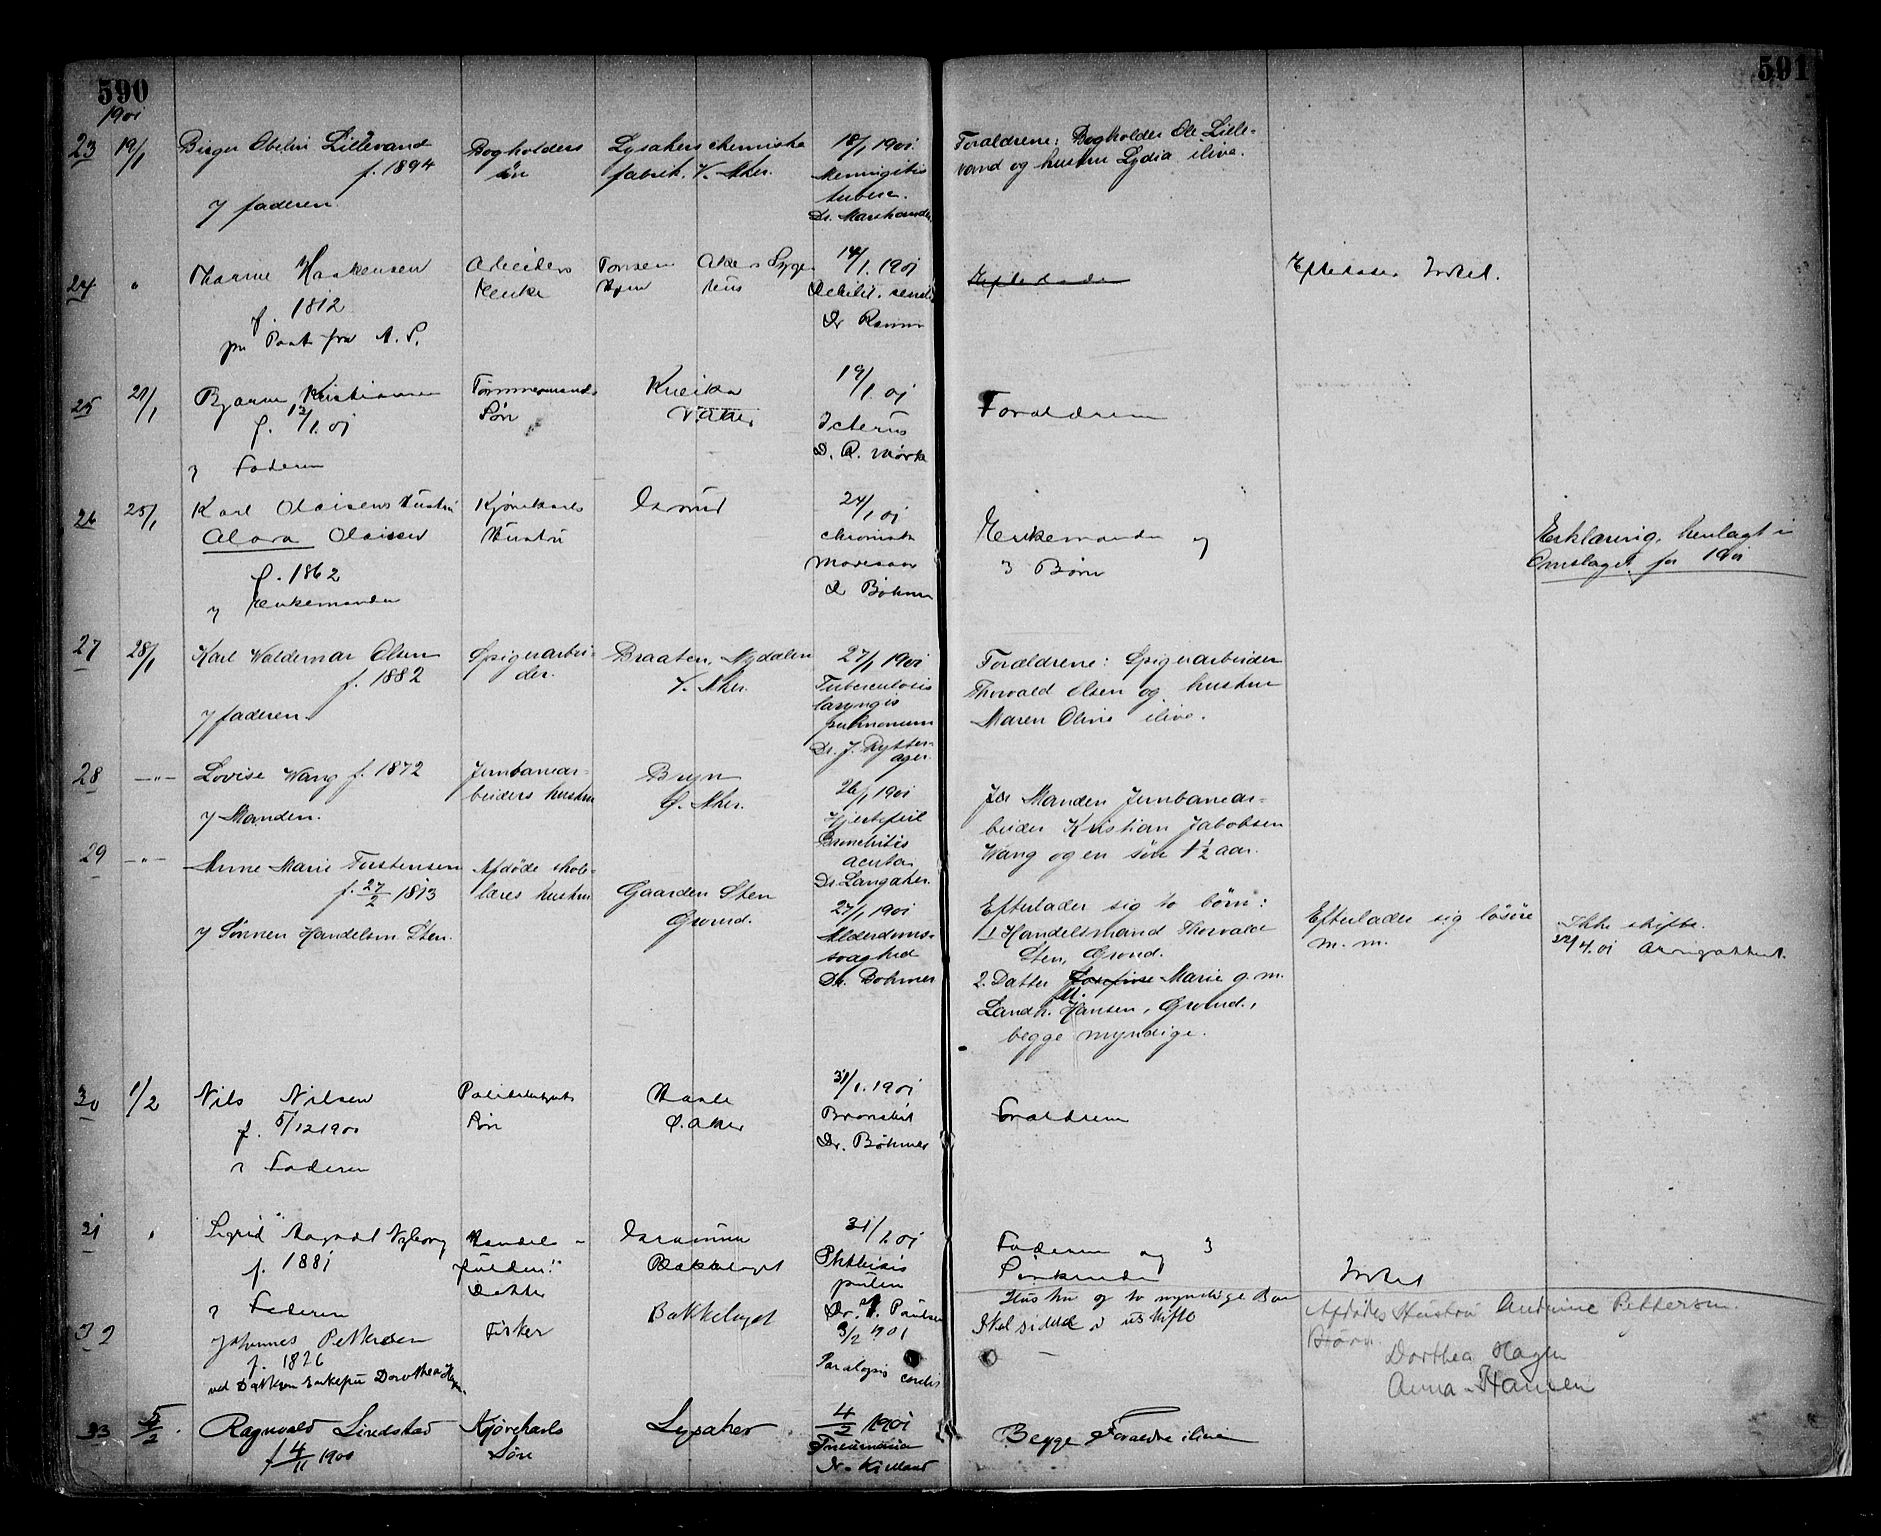 590
1901
591
23 19/1 Birger Obelin Lillevand
f. 1894
v/ faderen.
Bogholders
søn
Lysakers chemiske
fabrik. V. Aker.
18/1 1901.
Meningitis
tuberc.
Dr.
Forældrene: Bogholder Ole Lille-
vand og hustru Lydia ilive.
24 "
Haakensen
f. 1812
pr Post fra A. S.
Arbeiders
Enke
Tonsen
Hjem
Akers Syge
hus
14/1. 1901
Debilit. senil
Dr
Efterlader
Efterlader Intet.
25 21/1 Bjarne Kristiansen
f. 12/1. 01
v/ Faderen
Tømmermands
Søn
V. Aker
19/1. 01
Icterus
D. A. Mørk
Forældrene
26 25/1 Karl Olaisens Hustru
Olaisen
f. 1862
v/ Enkemanden
Kjørekarls
Hustru
Grorud
24/1 01
chronisk
D Böhmer
Enkemanden og
3 Børn
Erklæring henlagt i
Omslaget for 1901
27 28/1 Karl Waldemar Olsen
f. 1882
v/ faderen.
Spigerarbei-
der.
Braaten, Nydalen
V. Aker.
27/1 1901
Tuberculosis
laryngis
pulmonum
Dr. J. Rytter-
ager.
Forældrene: Spigerarbeider
Thorvald Olsen og hustru
Maren Oline ilive.
28 —"— Lovise Wang f. 1872
v/ Manden.
Jernbanear-
beiders hustru
Bryn
Ø. Aker.
26/1 1901
Hjertefeil
Bronchitis
acuta
Dr. Langaker.
Manden Jernbanear-
beider Kristian Jakobsen
Wang og en søn 1½ aar.
29 —"— Anne Marie Torstensen
f. 27/2 1813
v/ Sønnen Handelsm. Sten.
Afdøde skole-
læres hustru
Gaarden Sten
Grorud.
27/1 1901
Alderdoms-
svaghed
Dr. Bohmer
Efterlader sig to børn:
1 Handelsmand Thorvald
Sten, Grorud.
2. Datter Josefine Marie g. m.
Landh. Hansen, Grorud,
begge myndige.
Efterlader sig løsøre
m. m.
Ikke skifte.
/4. 01
30 1/2 Nils Nilsen
f. 5/12 1900
v/ Faderen
Politibetjents
Søn
Ø. Aker
31/1. 1901
Bronkit
Dr. Böhmer
Forældrene
31 " Sigrid Nyborg
f. 1881
v/ Faderen
Datter
Bækkelaget
31/1. 01
Phthisis
pulm
Dr. Paulsen
Faderen og 3
Søskende
Intet
32 Johannes Pettersen
f. 1826
ved Datteren Enkefru Dorothea Hagen
Fisker
Bækkelaget
3/2 1901
Paralysis cordis
Hustru og to myndige Børn
Skal sidde i uskifte
Afdødes Hustru Andrine Pettersen.
Børn
Dorthea Hagen
Anna Hansen
33 5/2. Ragnvald Lindstad
f 4/11 1900
Kjørekarls
Søn
Lysaker
4/2 1901
Pneumonia
Dr. Kielland
Begge Forældre ilive